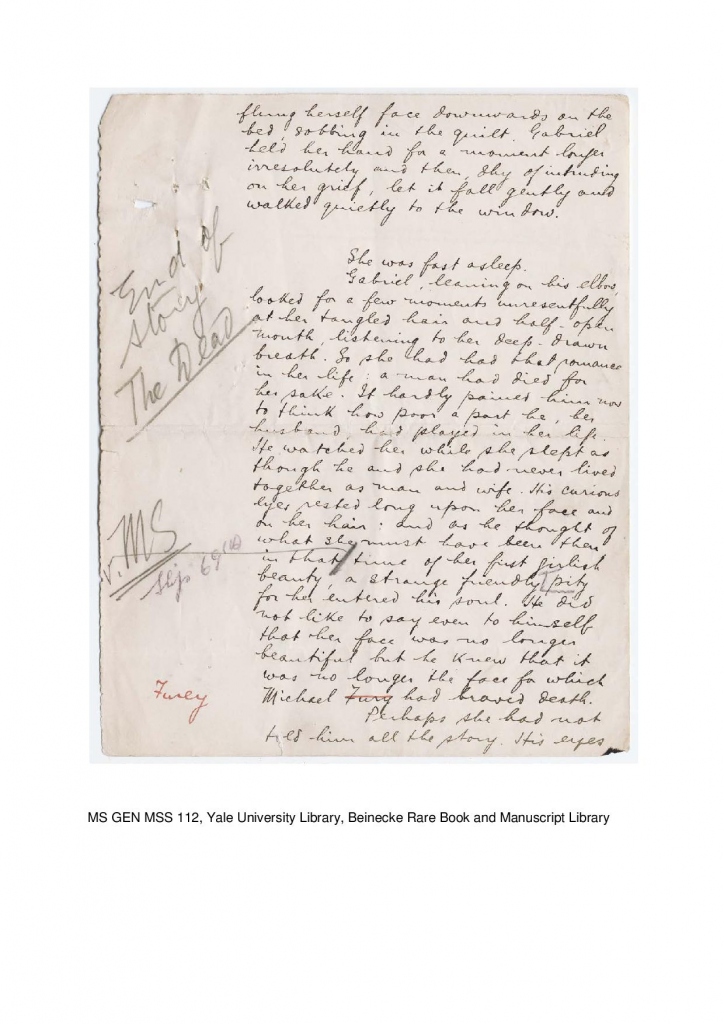 flung herself face downwards on the
bed, sobbing in the quilt. Gabriel
held her hand for a moment longer
irresolutely and then, shy of intruding
on her grief, let it fall gently and
walked quietly to the window.
She was fast asleep.
Gabriel, leaning on his elbow,
looked for a few moments unresentfully
at her tangled hair and half-open
mouth, listening to her deep-drawn
breath. So she had had that romance
in her life: a man had died for
her sake. It hardly pained him now
to think how poor a part he, her
husband, had played in her life.
He watched her while she slept as
though he and she had never lived
together as man and wife. His curious
eyes rested long upon her face and
on her hair: and as he thought of
what she must have been then
in that time of her first girlish
beauty, a strange friendly pity
for her entered his soul. He did
not like to say even to himself
that her face was no longer
beautiful but he knew that it
was no longer the face for which
Michael Fury had braved death.
Perhaps she had not
told him all the story. His eyes
End of
story
The Dead
v. MS
Slip 69
Furey
MS GEN MSS 112, Yale University Library, Beinecke Rare Book and Manuscript Library